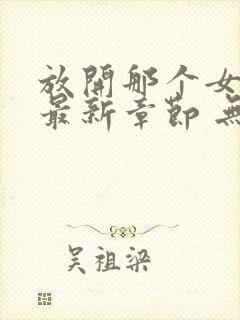 放開那个女
最新章節 無
吴祖梁